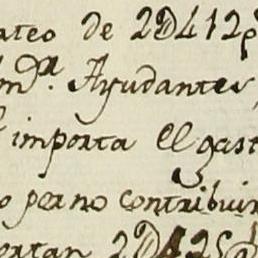 ateo de 2D412p
m.dr Ayudantes,
importa el gast
o per no contribuir
ortan 2D425p